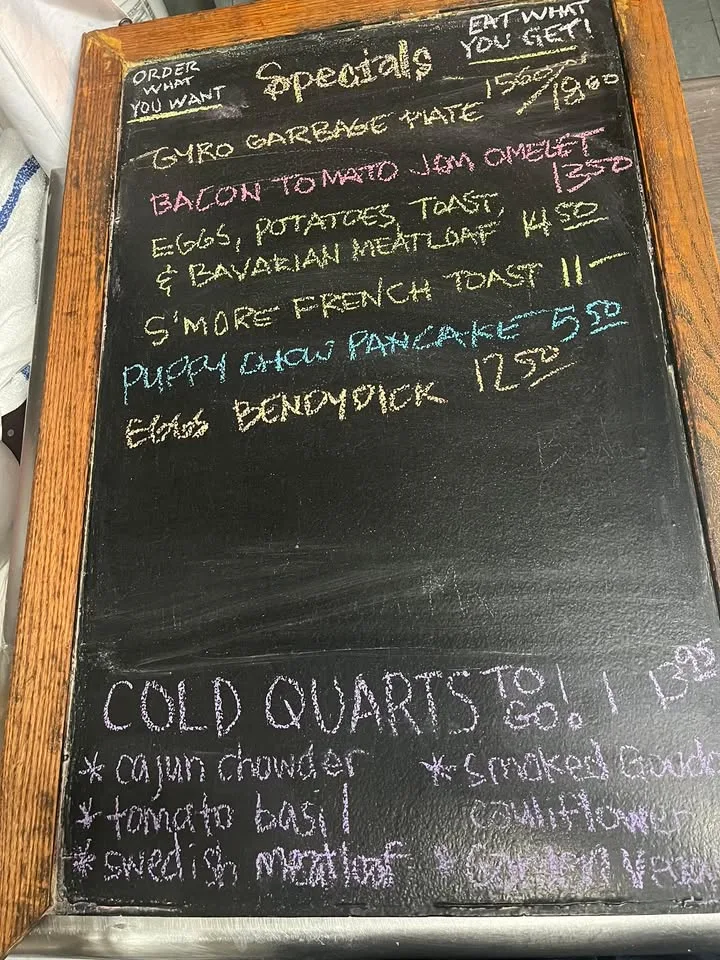 ORDER
WHAT
YOU WANT
Specials
EAT WHAT
YOU GET!
GYRO GARBAGE PLATE 1500/1800
BACON TOMATO JAM OMELET
1350
EGGS, POTATOES, TOAST,
& BAVARIAN MEATLOAF 1450
S'MORE FRENCH TOAST 11-
PUPPY CHOW PANCAKE 550
EGGS BENDYDICK 1250
COLD QUARTS TO GO! 1395
* cajun chowder
* tomato basil
* swedish meatloaf
* smoked Gouda
cauliflower
* Garden